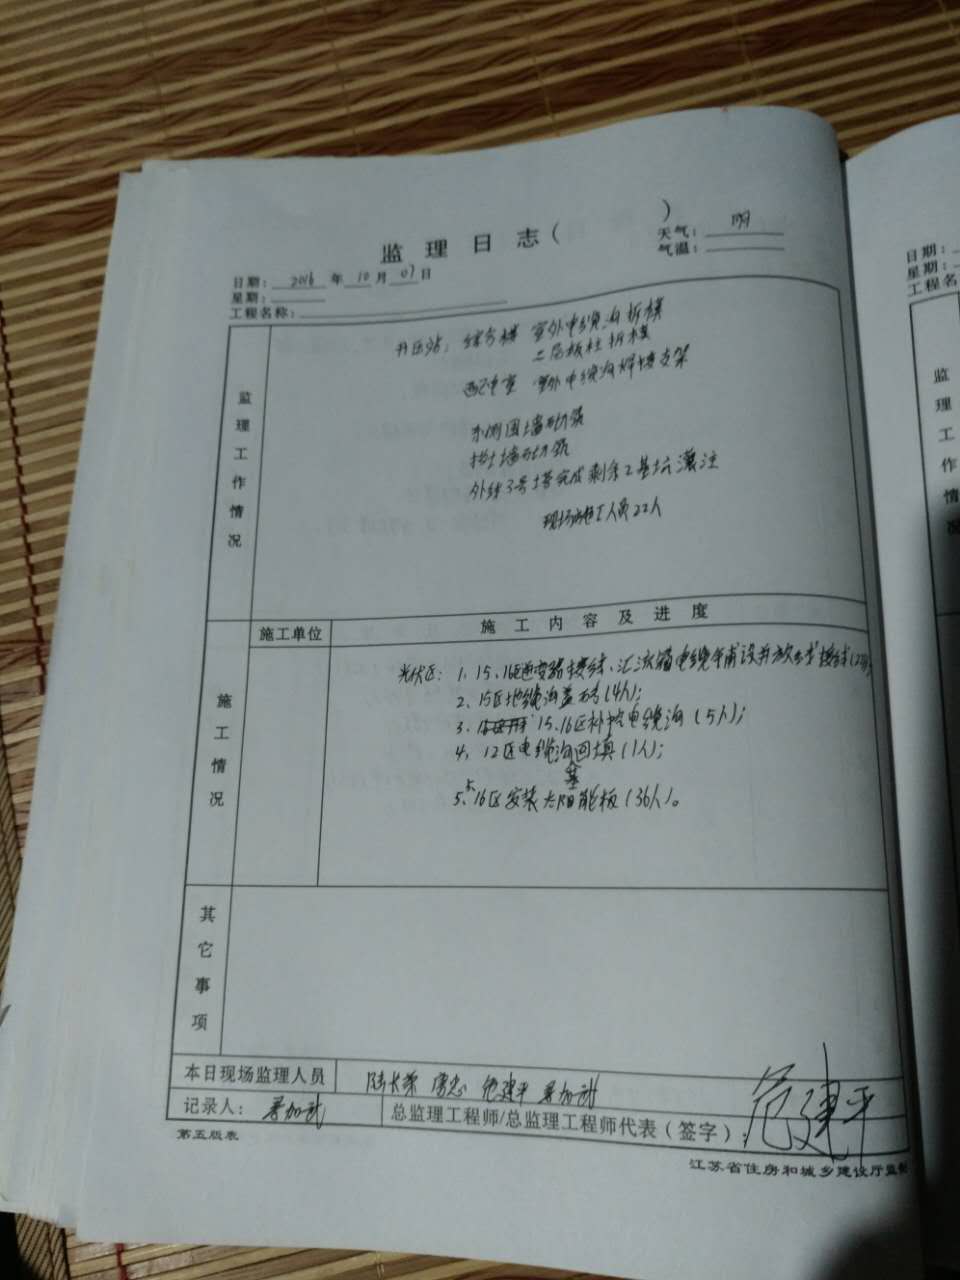 监理日志( )
天气: 晴
气温:
日期: 2016 年 10 月 07 日
星期:
工程名称:
监理工作情况
升压站: 综合楼 室外电缆沟拆模
二层板柱拆模
配电室 室外电缆沟焊接支架
东侧围墙砌筑
挡土墙砌筑
外线3号塔完成剩余2基坑灌注
现场施工人员22人
施工情况
施工单位
施工内容及进度
光伏区: 1、15、16区逆变器接线、汇流箱电缆 接线
2、15区地缆沟盖砖(4人);
3、 15、16区补挖电缆沟(5人);
4、12区电缆沟回填(1人);
基
5、16区安装太阳能板(36人)。
其它事项
本日现场监理人员
陆长荣 危建平
记录人:
总监理工程师/总监理工程师代表(签字): 危建平
第五版表
江苏省住房和城乡建设厅监制
日期:
星期:
工程名
监理工作情况